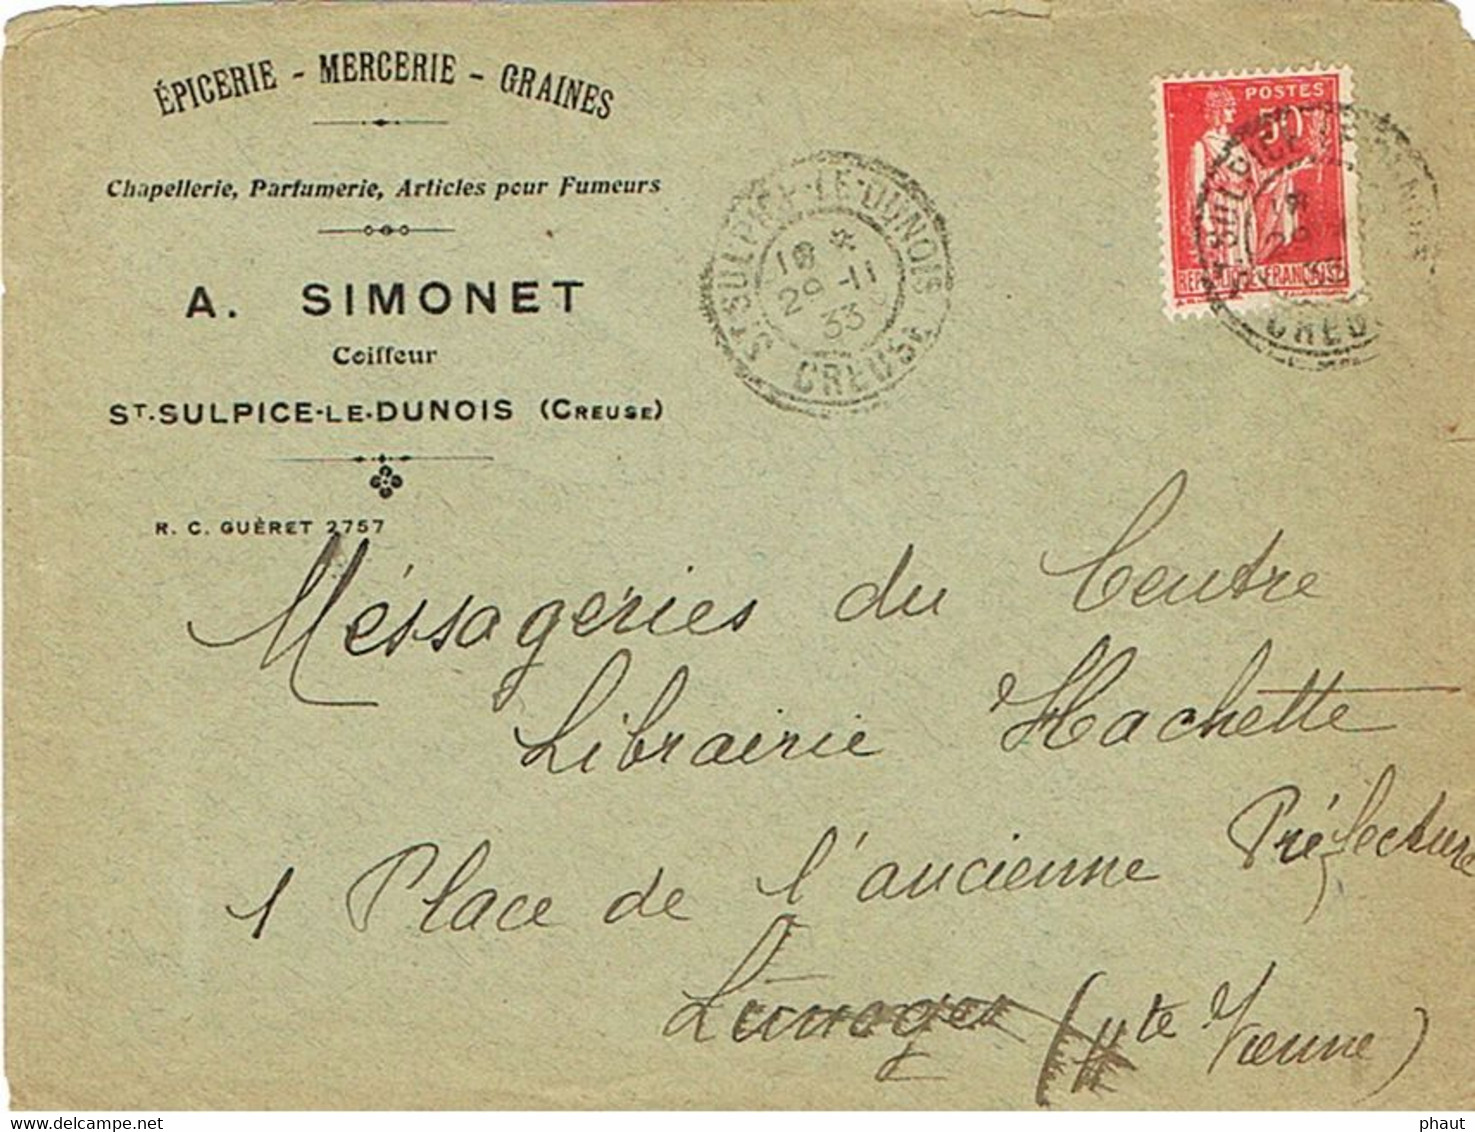 ÉPICERIE - MERCERIE - GRAINES
Chapellerie, Parfumerie, Articles pour Fumeurs
A. SIMONET
Coiffeur
ST-SULPICE-LE-DUNOIS (CREUSE)
R. C. GUÈRET 2757
ST SULPICE-LE-DUNOIS
18 *
29-11
33
CREUSE
POSTES
50
REPUBLIQUE FRANÇAISE
Méssageries du Centre
Librairie Hachette
1 Place de l'ancienne Préfecture
Limoges (Hte Vienne)
Delcampe.net
phaut